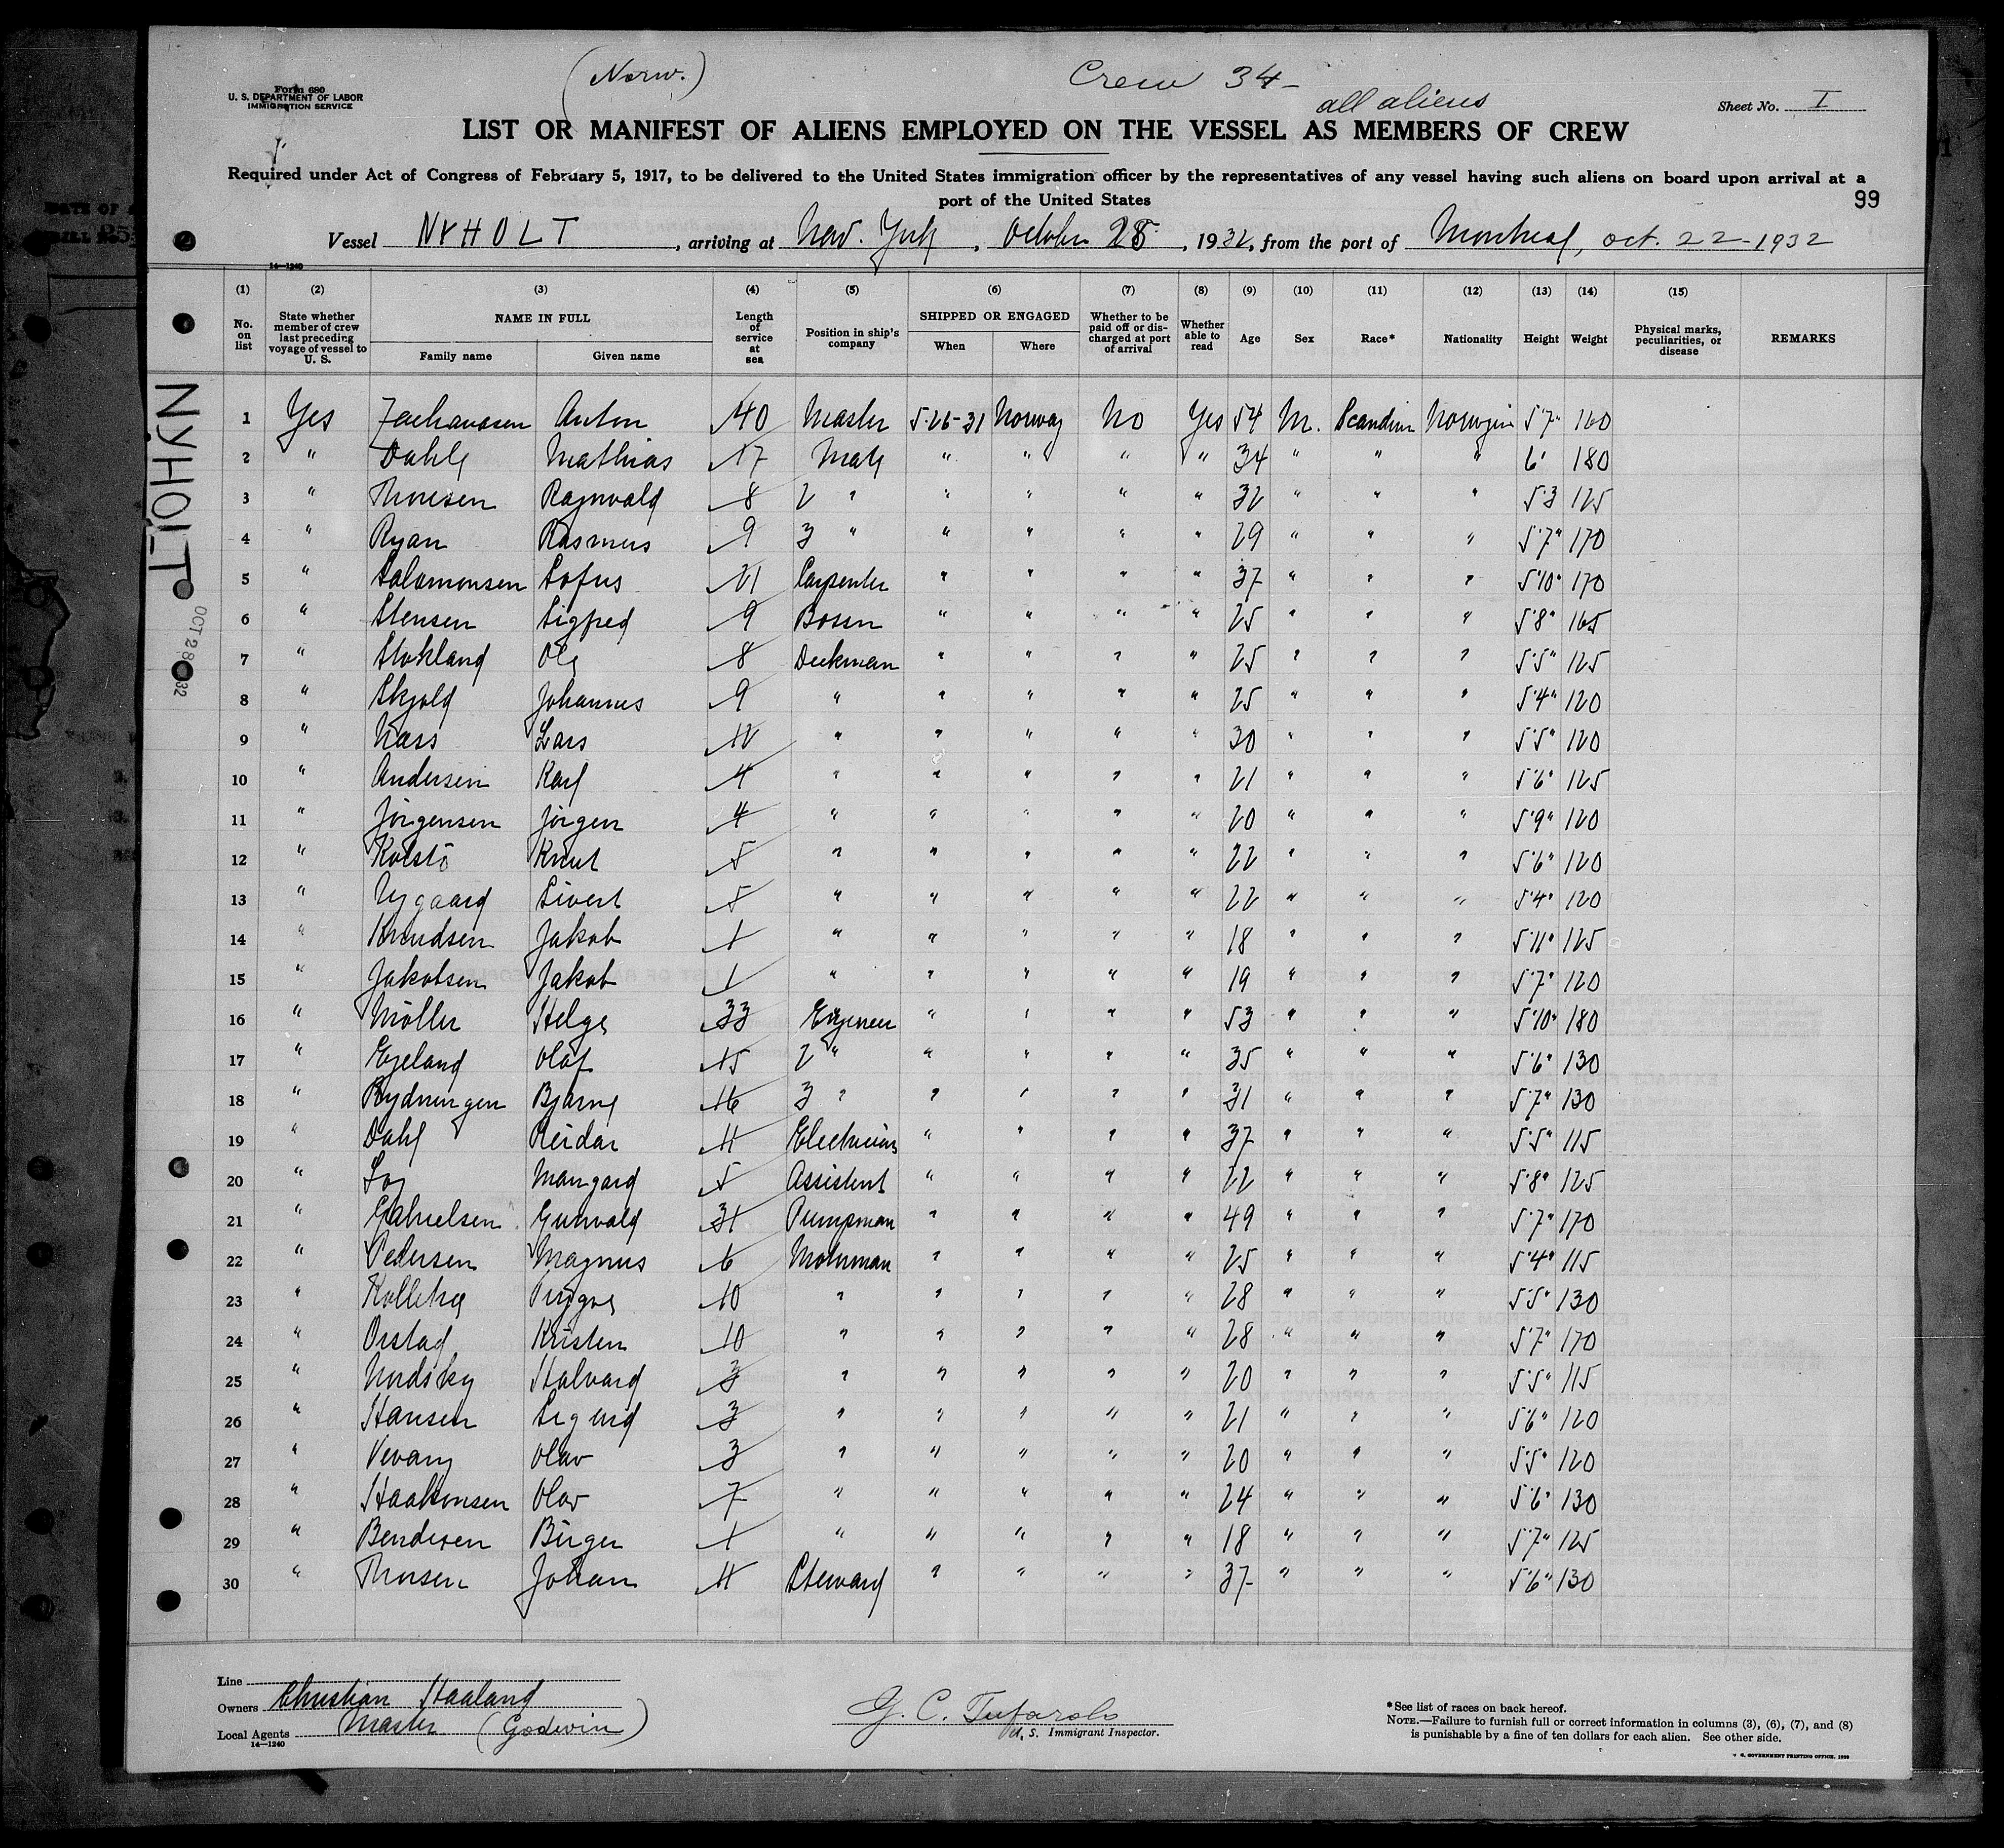 (Norw.)
Crew 34 -
all aliens
Form 680
U. S. DEPARTMENT OF LABOR
IMMIGRATION SERVICE
Sheet No. I
LIST OR MANIFEST OF ALIENS EMPLOYED ON THE VESSEL AS MEMBERS OF CREW
Required under Act of Congress of February 5, 1917, to be delivered to the United States immigration officer by the representatives of any vessel having such aliens on board upon arrival at a
port of the United States
99
Vessel NYHOLT, arriving at New. York, October 28, 1932, from the port of Montreal, oct. 22-1932
14—1240
(1) (2) (3) (4) (5) (6) (7) (8) (9) (10) (11) (12) (13) (14) (15)
No. on list State whether member of crew last preceding voyage of vessel to U. S. NAME IN FULL Family name Given name Length of service at sea Position in ship's company SHIPPED OR ENGAGED When Where Whether to be paid off or discharged at port of arrival Whether able to read Age Sex Race* Nationality Height Weight Physical marks, peculiarities, or disease REMARKS
NYHOLT
OCT 28 32
1 Yes Zachariassen Anton 40 Master 5-26-31 Norway No Yes 54 M. Scandin Norwegin 5'7" 160
2 " Dahle Mathias 17 Mate " " " " 34 " " " 6' 180
3 " Thorsen Ragnvald 8 2 " " " " " 32 " " " 5'3 125
4 " Ryan Rasmus 9 3 " " " " " 29 " " " 5'7" 170
5 " Salomonsen Sofus 21 Carpenter " " " " 37 " " " 5'10" 170
6 " Stensen Sigfred 9 Bosun " " " " 25 " " " 5'8" 165
7 " Stokland Ole 8 Deckman " " " " 25 " " " 5'5" 125
8 " Skjold Johannes 9 " " " " " 25 " " " 5'4" 120
9 " Nass Lars 12 " " " " " 30 " " " 5'5" 120
10 " Andersen Karl 4 " " " " " 21 " " " 5'6" 125
11 " Jörgensen Jörgen 4 " " " " " 20 " " " 5'9" 120
12 " Kolstö Knut 5 " " " " " 22 " " " 5'6" 120
13 " Nygaard Sivert 5 " " " " " 22 " " " 5'4" 120
14 " Knudsen Jakob 1 " " " " " 18 " " " 5'11" 125
15 " Jakobsen Jakob 1 " " " " " 19 " " " 5'7" 120
16 " Möller Helge 33 Engineer " " " " 53 " " " 5'10" 180
17 " Egeland Olaf 15 2 " " " " " 35 " " " 5'6" 130
18 " Rydningen Bjarne 16 3 " " " " " 31 " " " 5'7" 130
19 " Dahl Reidar 11 Electrician " " " " 37 " " " 5'5" 115
20 " Mangard 5 Assistent " " " " 22 " " " 5'8" 125
21 " Gabrielsen Gunvald 31 Pumpman " " " " 49 " " " 5'7" 170
22 " Pedersen Magnus 6 Motorman " " " 25 " " " 5'4" 115
23 " 10 " " " " " 28 " " " 5'5" 130
24 " Orstad Kristen 10 " " " " " 28 " " " 5'7" 170
25 " Halvard 3 " " " " " 20 " " " 5'5" 115
26 " Hansen Sigurd 3 " " " " " 21 " " " 5'6" 120
27 " Olav 3 " " " " " 20 " " " 5'5" 120
28 " Haakonsen Olav 7 " " " " " 24 " " " 5'6" 130
29 " Bendixen Birger 1 " " " " " 18 " " " 5'7" 125
30 " Thorsen Johan 11 Steward " " " " 37 " " " 5'6" 130
Line
Owners Christian Haaland
Local Agents Master (Godwin)
14—1240
G. C. Tufarolo
U. S. Immigrant Inspector.
*See list of races on back hereof.
NOTE.—Failure to furnish full or correct information in columns (3), (6), (7), and (8)
is punishable by a fine of ten dollars for each alien. See other side.
GOVERNMENT PRINTING OFFICE